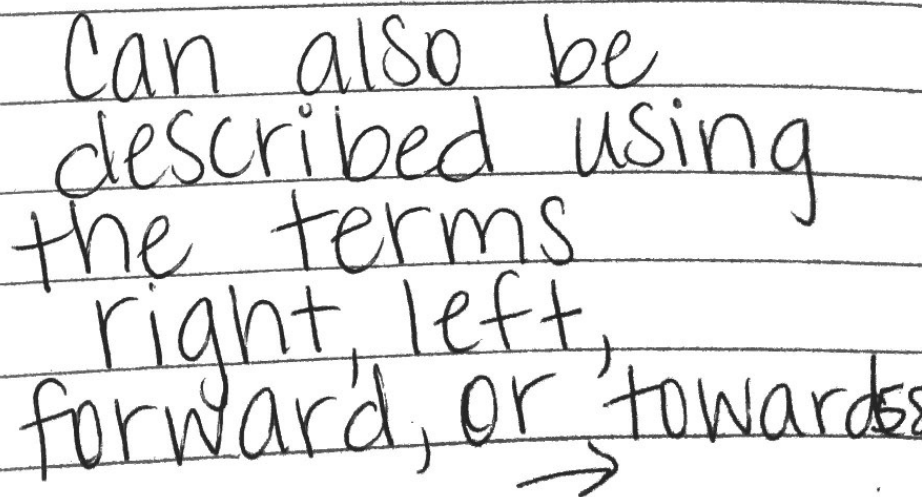 Can also be
described using
the terms
right, left,
forward, or towards